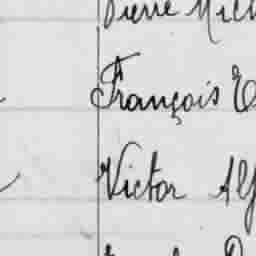 Pierre Mich
François E
Victor Alf